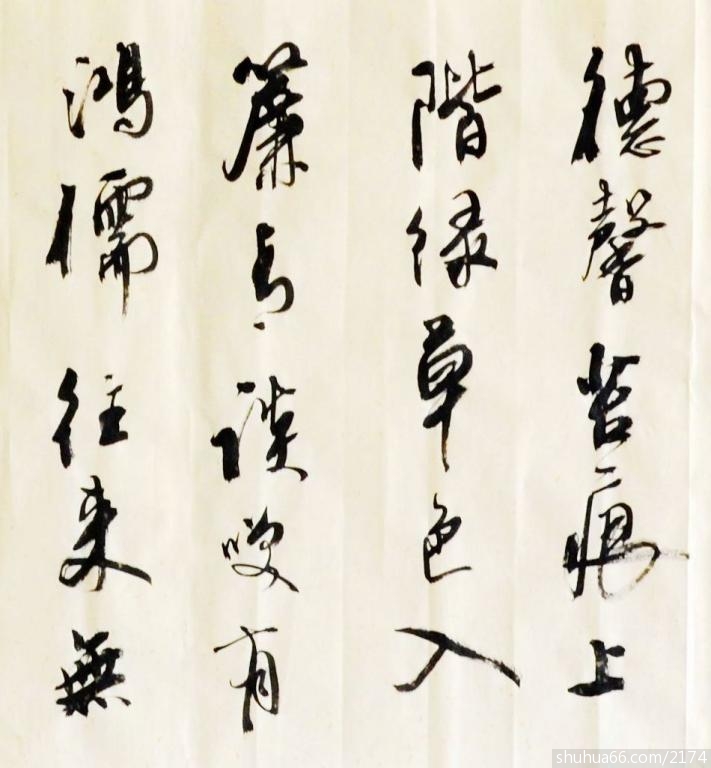 德馨苔痕上
階緑草色入
簾青談笑有
鴻儒往來無
shuhua66.com/2174